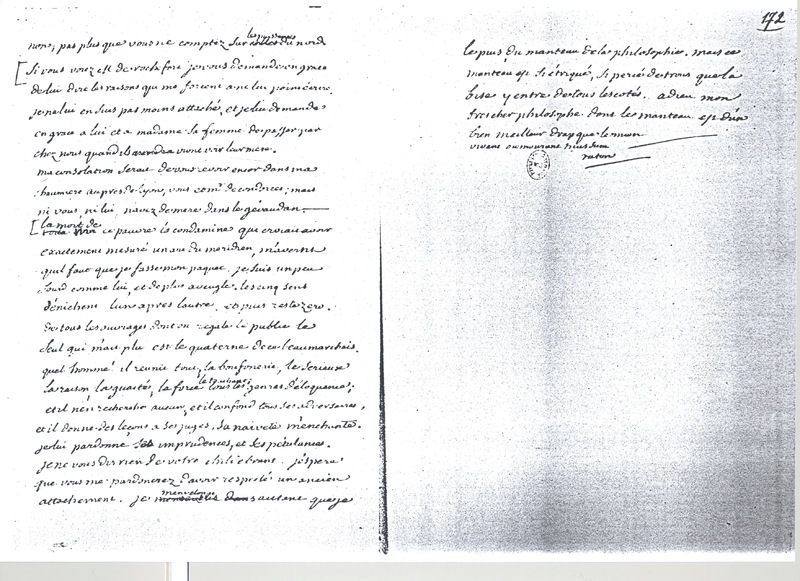 non, pas plus que vous ne comptez sur les puissances du nord
Si vous voiez mr de rochefort je vous demande en grace
de lui dire les raisons qui me forcent a ne lui point écrire.
je ne lui en suis pas moins attaché, et je lui demande
en grace a lui et a madame sa femme de passer par
chez nous quand ils viennent voir leur mere.
ma consolation serait de vous revoir encor dans ma
chaumiere auprès de Lyon, vous mais
ni vous ni lui n'avez de mere dans le gévaudan.
la mort de
ce pauvre la condamine qui croiait avoir
exactement mesuré un arc du meridien, m'avertit
quil faut que je fasse mon paquet. je suis un peu
sourd comme lui, et de plus aveugle. les cinq sens
dénichent lun apres lautre, et puis reste zero.
de tous les ouvrages dont on regale le public le
seul qui m'ait plu est le quaterne de ce beaumarchais.
quel homme! il réunit tout, la boufonerie, le serieux
la raison la guaieté, la force le touchant tous les genres d'éloquence;
et il n'en recherche aucun, et il confond tous ses adversaires,
et il donne des leçons a ses juges. sa naiveté m'enchante.
je lui pardonne ses imprudences, et ses pétulances.
je ne vous dis rien de votre j'espere
que vous me pardonerez d'avoir respecté un ancien
attachement. je m'envelope autant que je
172
le puis du manteau de la philosophie. mais ce
manteau est si étriqué, si percé de trous que la
bise y entre de tous les cotés. adieu mon
très cher philosophe dont le manteau est d'un
bien meilleur drap que le mien
vivens ou mourant tuus sum
raton